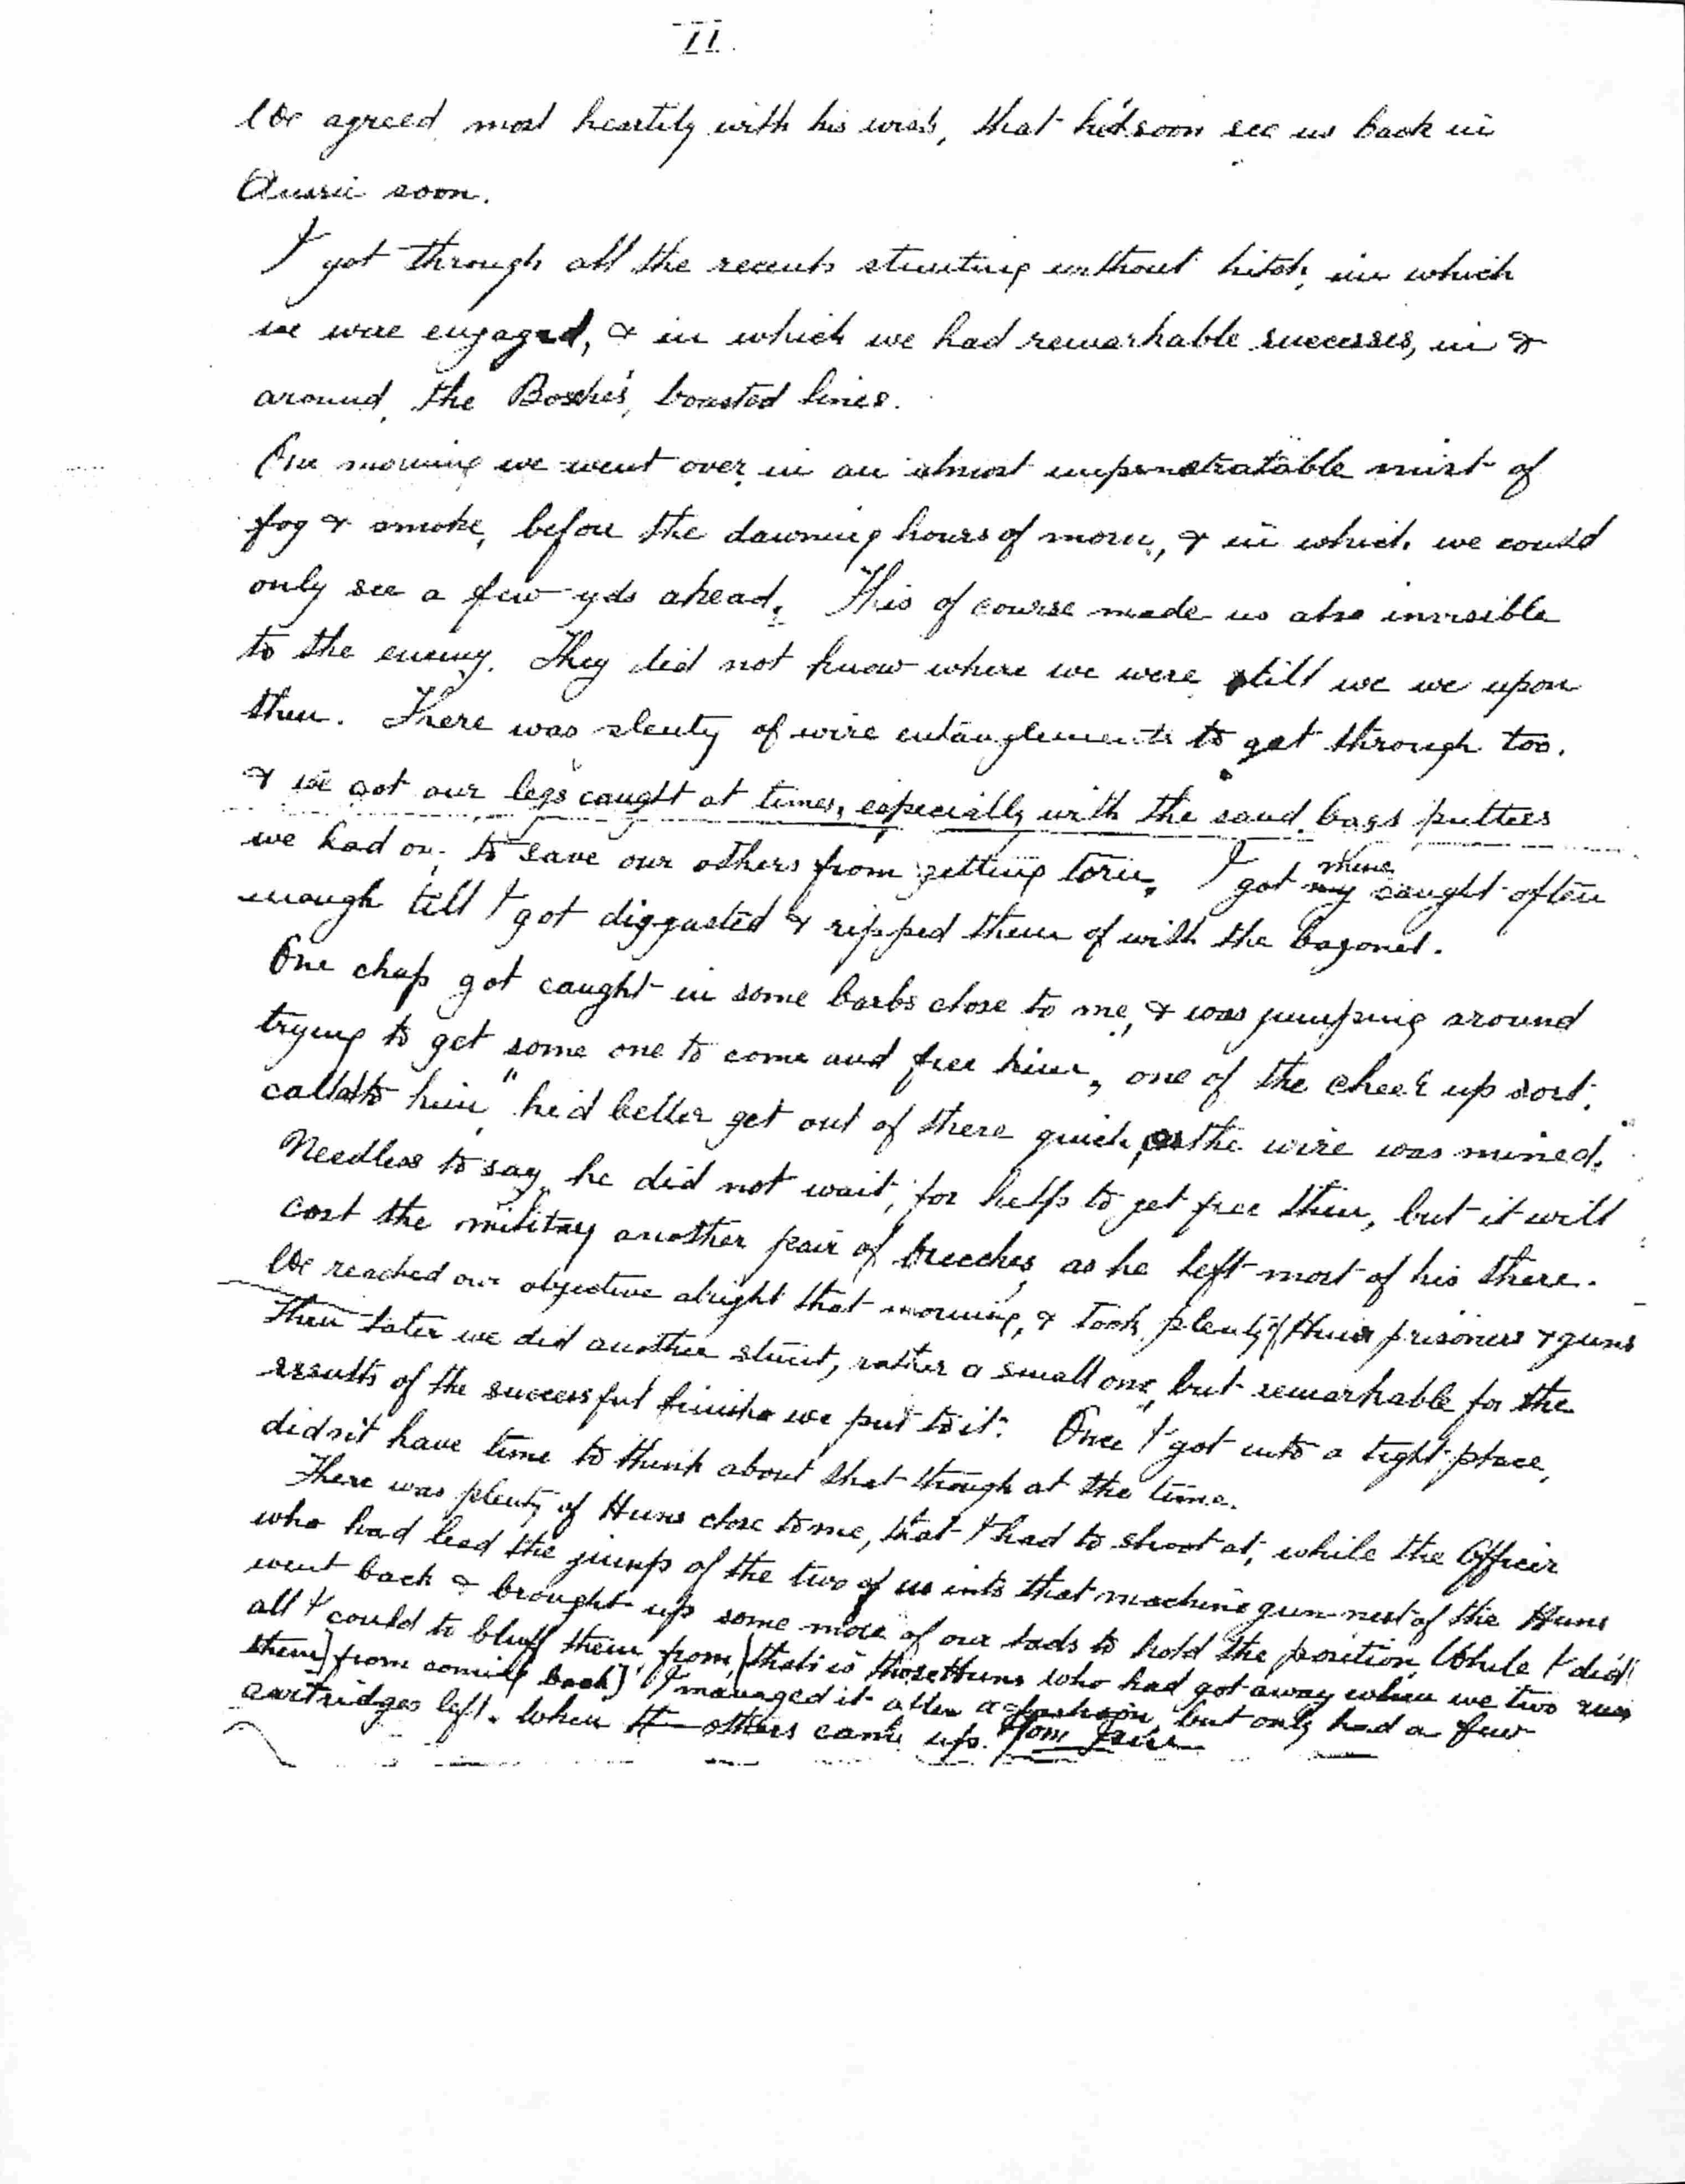 II.
We agreed most heartily with his wish, that he'd soon see us back in
Aussie soon.
I got through all the recent stunting without hitch, in which
we were engaged, & in which we had remarkable successes, in &
around, the Bosche's, boasted lines.
One morning we went over, in an almost unpenetratable mist of
fog & smoke, before the dawning hours of morn, & in which we could
only see a few yds ahead. This of course made us also invisible
to the enemy. They did not know where we were till we we upon
them. There was plenty of wire entanglements to get through too.
& we got our legs caught at times, especially with the sand bags puttees
we had on, to save our others from getting torn. I got my mine caught often
enough till I got disgusted & ripped them of with the bayonet.
One chap got caught in some barbs close to me, & was jumping around
trying to get some one to come and free him, one of the cheer up sort,
called to him "he'd better get out of there quick, as the wire was mined."
Needless to say he did not wait, for help to get free then, but it will
cost the military another pair of breeches, as he left most of his there.
We reached our objective alright that morning, & took plenty of Huns prisoners & guns
Then later we did another stunt, rather a small one, but remarkable for the
results of the successful finish we put to it. Once I got into a tight place,
didn't have time to think about that though at the time.
There was plenty of Huns close to me, that I had to shoot at, while the Officer
who had lead the jump of the two of us into that machine gun nest of the Huns
went back & brought up some more of our lads to hold the position. While I did
all I could to bluff them, from, [that is those Huns who had got away when we two run
them] from coming back] I managed it after a fashion, but only had a few
cartridges left. When others came up.